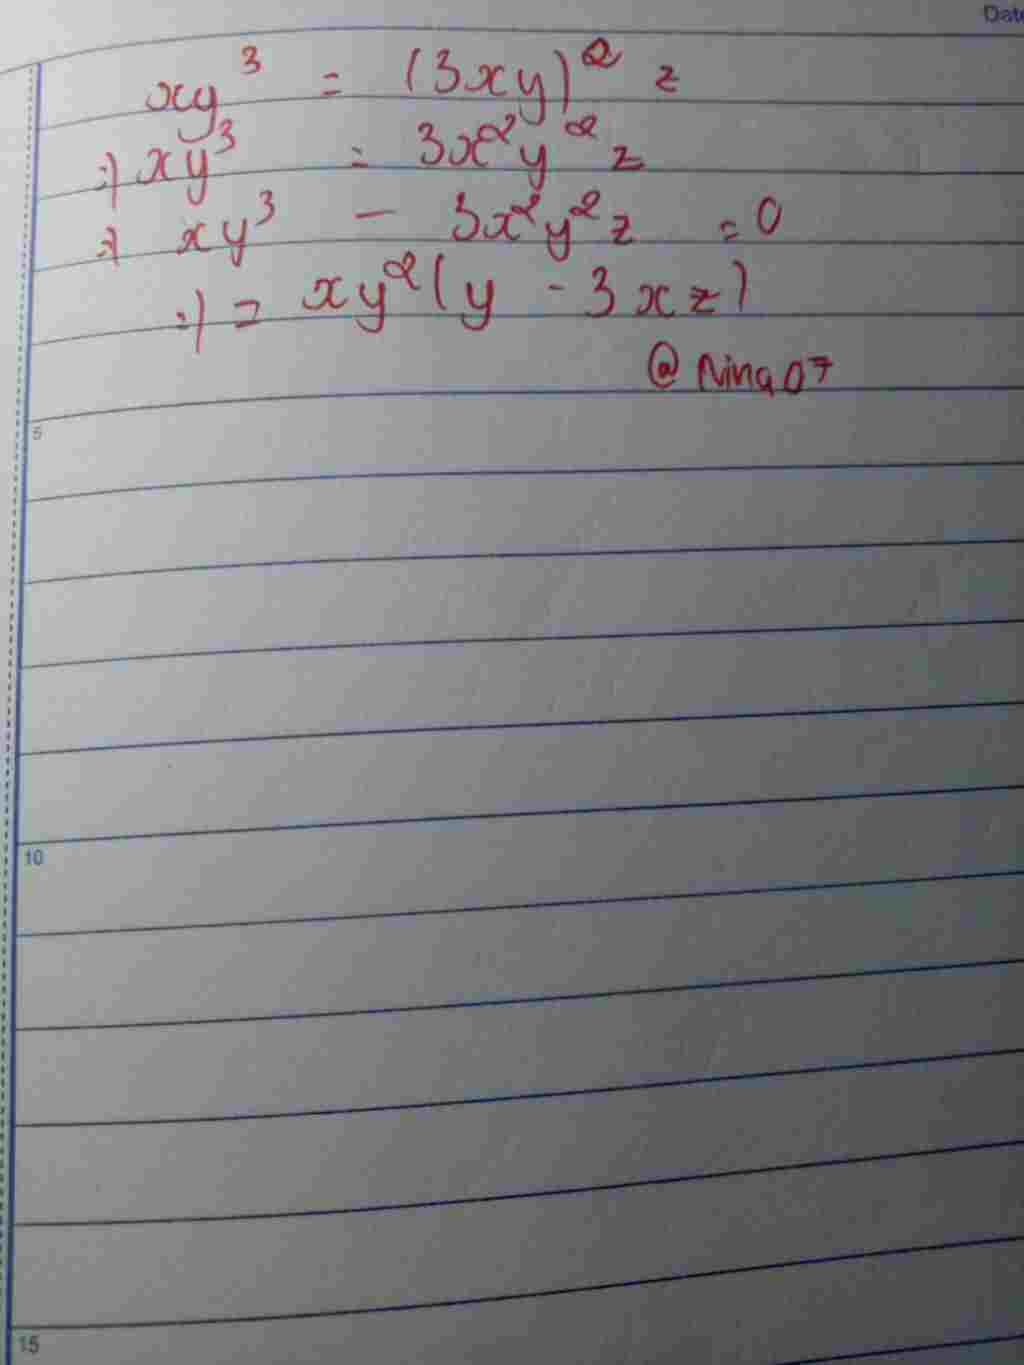 Date
xy³ = (3xy)² z
⇒ xy³ = 3x²y²z
⇒ xy³ - 3x²y²z = 0
⇒ = xy²(y - 3xz)
@Nina07
5
10
15